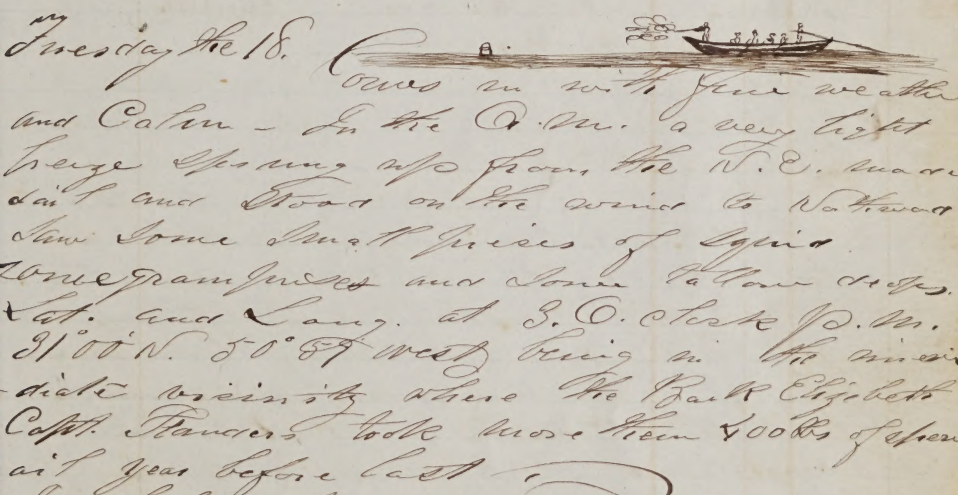 Tuesday the 18.
Comes in with fine weather
and Calm - In the A.M. a very light
breze sprung up from the N.E. made
sail and Stood on the wind to Nothward
Saw Some Small peises of squid
some grampuses and Some tallow drops.
Lat. and Long. at 3. O. clock P.M.
31° 00' N. 50° 57 west being in the imme
-diate vicinity where the Bark Elizebeth
Capt. Flanders took more then 400 bbs of sperm
oil year before last.